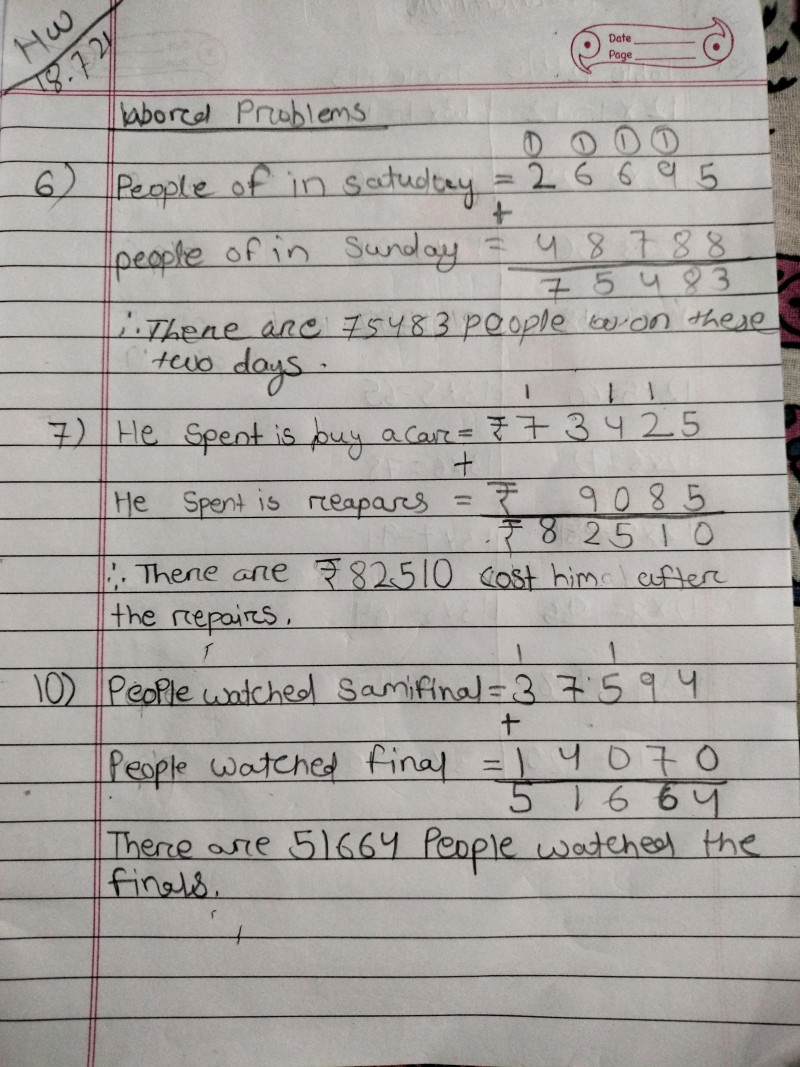 HW
18.7.21
Date
Page
laborcel Problems
① ① ① ①
6) People of in satudtay = 2 6 6 9 5
+
people of in Sunday = 4 8 7 8 8
7 5 4 8 3
∴ There are 75483 people on these
two days.
1 1 1
7) He Spent is buy a car = ₹ 7 3 4 2 5
+
He Spent is reapars = ₹ 9 0 8 5
₹ 8 2 5 1 0
∴ There are ₹ 82510 cost him after
the repairs.
1 1
10) People watched samifinal = 3 7 5 9 4
+
People watched final = 1 4 0 7 0
5 1 6 6 4
There are 51664 People watched the
finals.